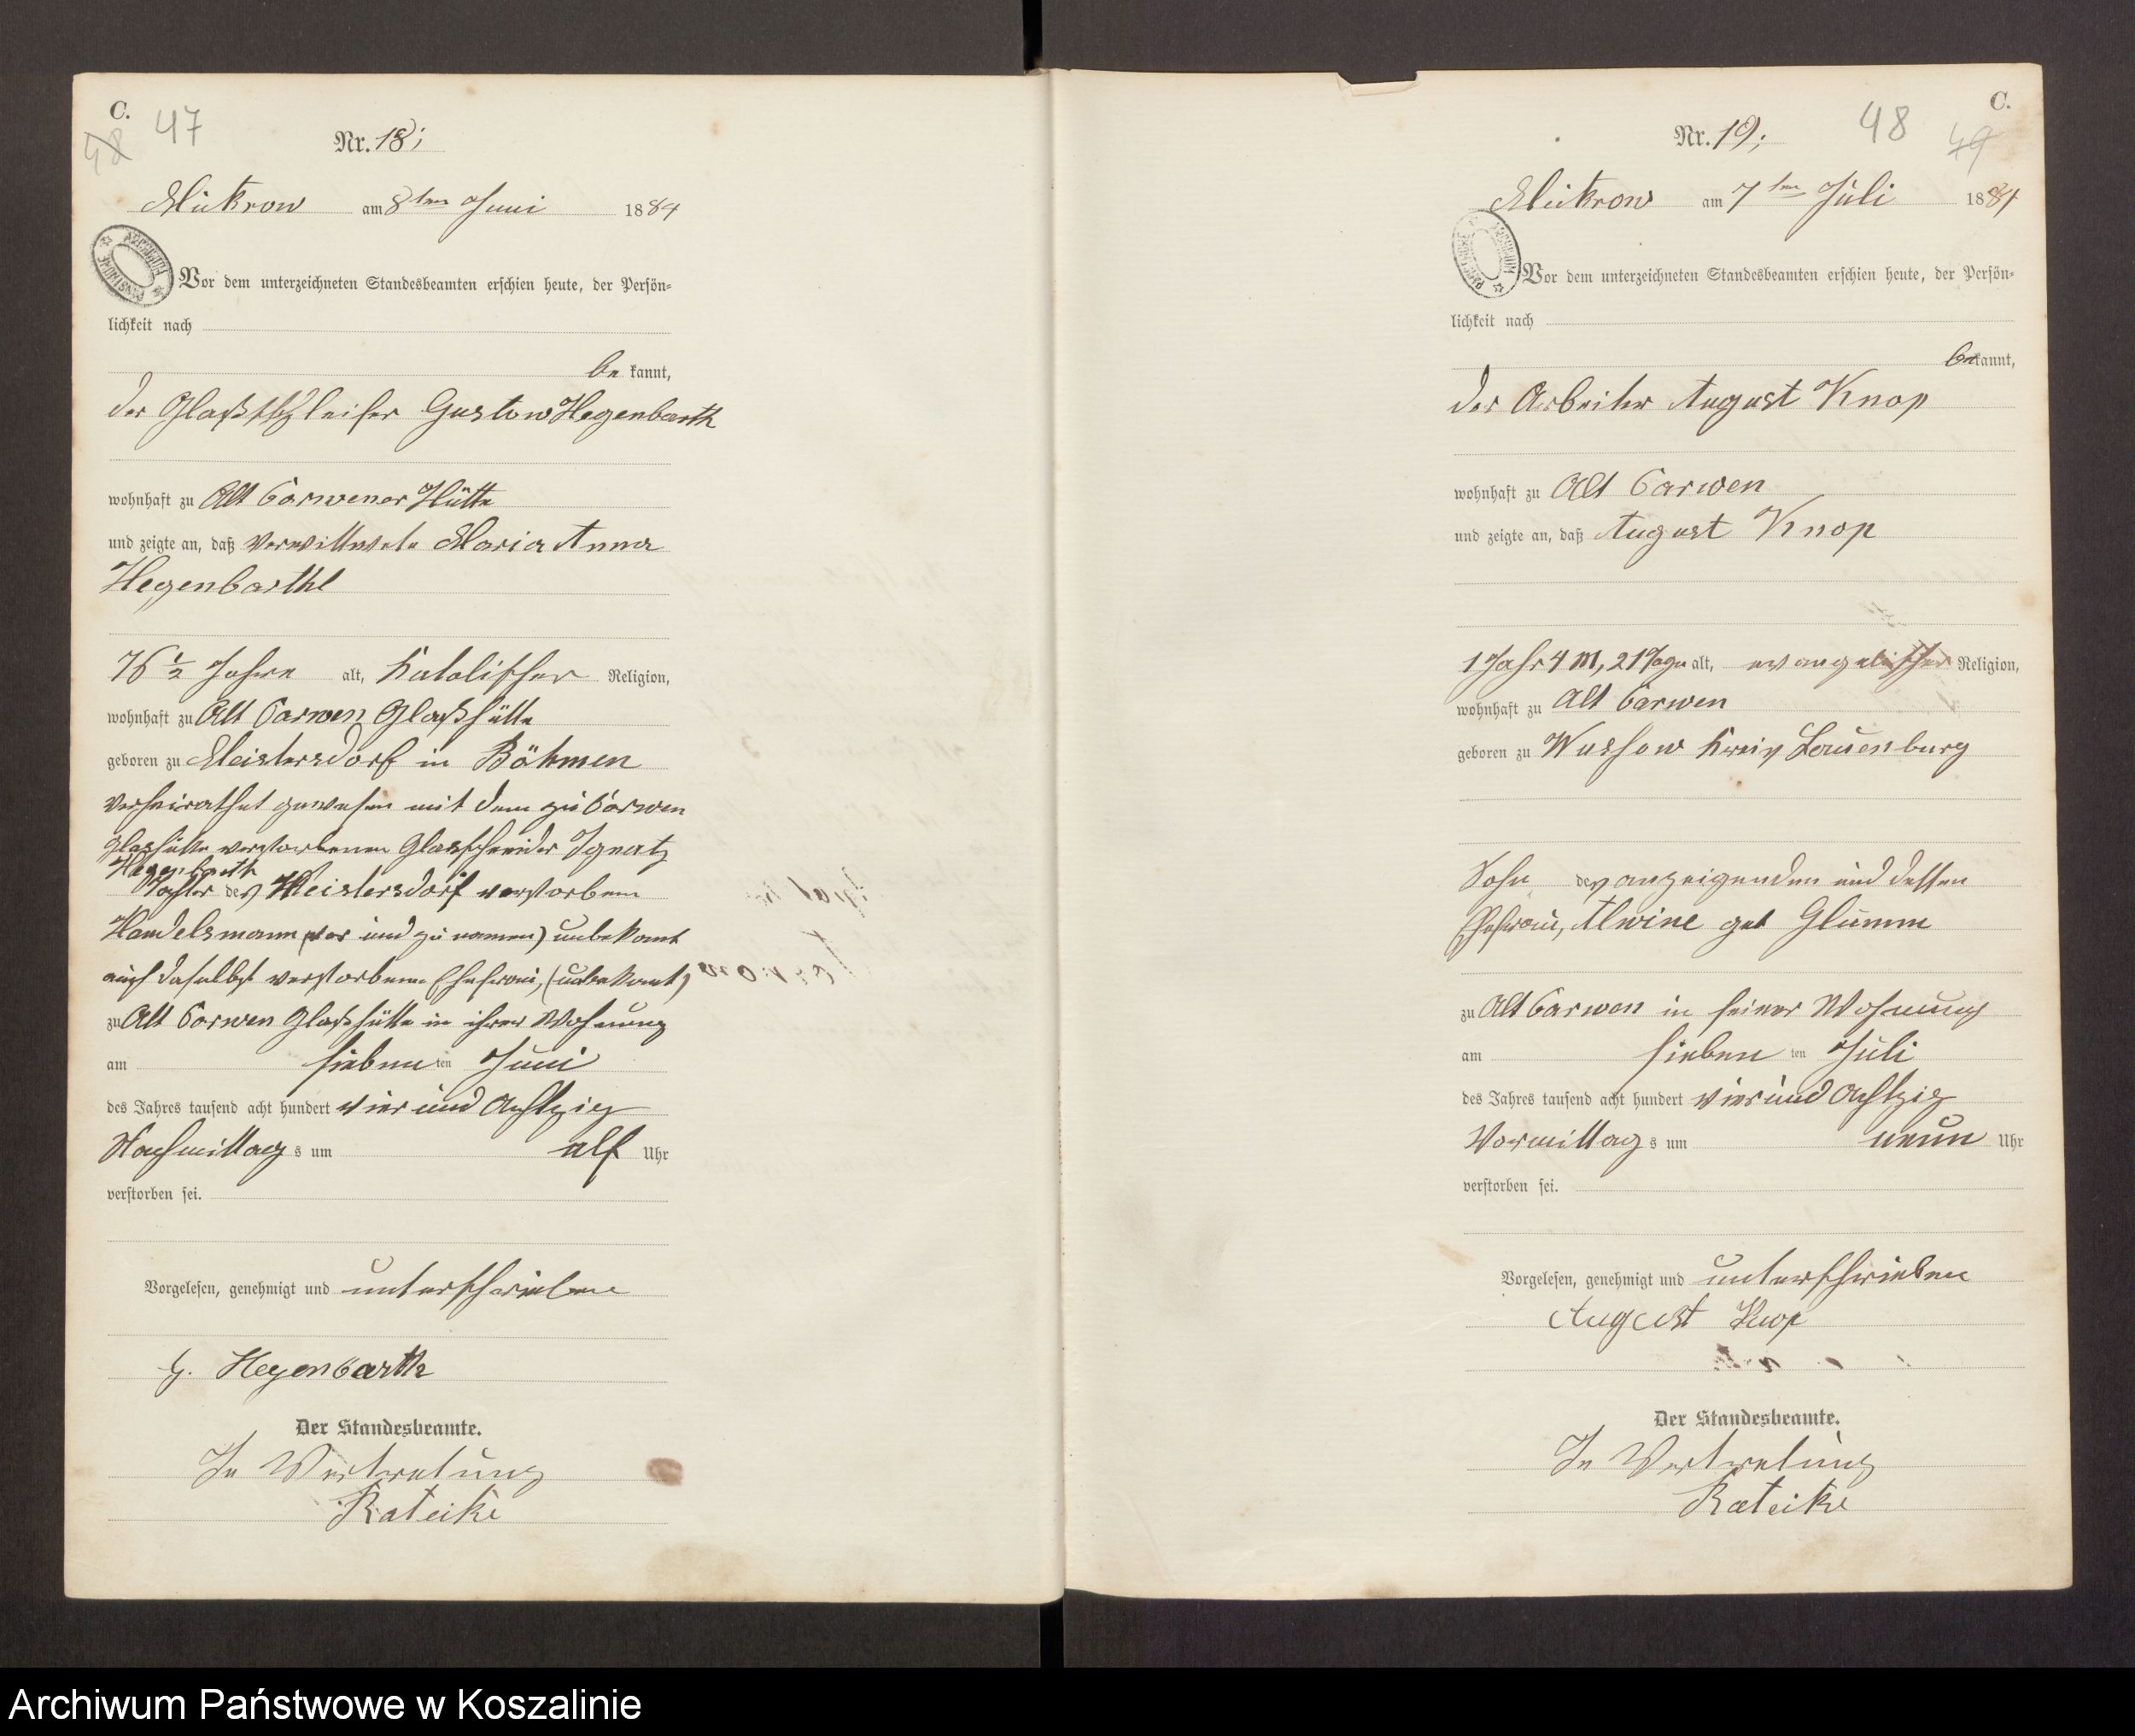 C.
48 47
Nr. 18;
Mückrow am 8ten Juni 1884
ARCHIWUM PAŃSTWOWE
Vor dem unterzeichneten Standesbeamten erschien heute, der Persön-
lichkeit nach
be kannt,
der Glaßschleifer Gustow Hegenbarth
wohnhaft zu Alt Carwener Hütte
und zeigte an, daß verwittwete Maria Anna
Hegenbarthl
76 ½ Jahre alt, katolischer Religion,
wohnhaft zu Alt Carwen Glaßhütte
geboren zu Meistersdorf in Böhmen
verheirathet gewesen mit dem zu Carwen
Glashütte verstorbenen Glasschneider Ignatz
Hegenbarth
Tochter des Meistersdorf verstorben
Handelsmann (vor und zu namen) unbekant
auch daselbst verstorbene Ehefrau, (unbekant)
zu Alt Carwen Glaßhütte in ihrer Wohnung
am sieben ten Juni
des Jahres tausend acht hundert vier und Achtzig
Nachmittag s um elf Uhr
verstorben sei.
Vorgelesen, genehmigt und unterschrieben
G. Hegenbarth
Der Standesbeamte.
In Vertretung
Rateike
C.
48 49
Nr. 19;
Mückrow am 7ten Juli 1884
ARCHIWUM PAŃSTWOWE
Vor dem unterzeichneten Standesbeamten erschien heute, der Persön-
lichkeit nach
bekannt,
der Arbeiter August Knop
wohnhaft zu Alt Carwen
und zeigte an, daß August Knop
1 Jahr 4 M, 21 Tage alt, evangelischer Religion,
wohnhaft zu Alt Carwen
geboren zu Wussow Kreis Lauenburg
Sohn des anzeigenden und dessen
Ehefrau, Alwine geb Glumm
zu Alt Carwen in seiner Wohnung
am sieben ten Juli
des Jahres tausend acht hundert vier und Achtzig
Vormittag s um neun Uhr
verstorben sei.
Vorgelesen, genehmigt und unterschrieben
August Knop
Der Standesbeamte.
In Vertretung
Rateike
Archiwum Państwowe w Koszalinie